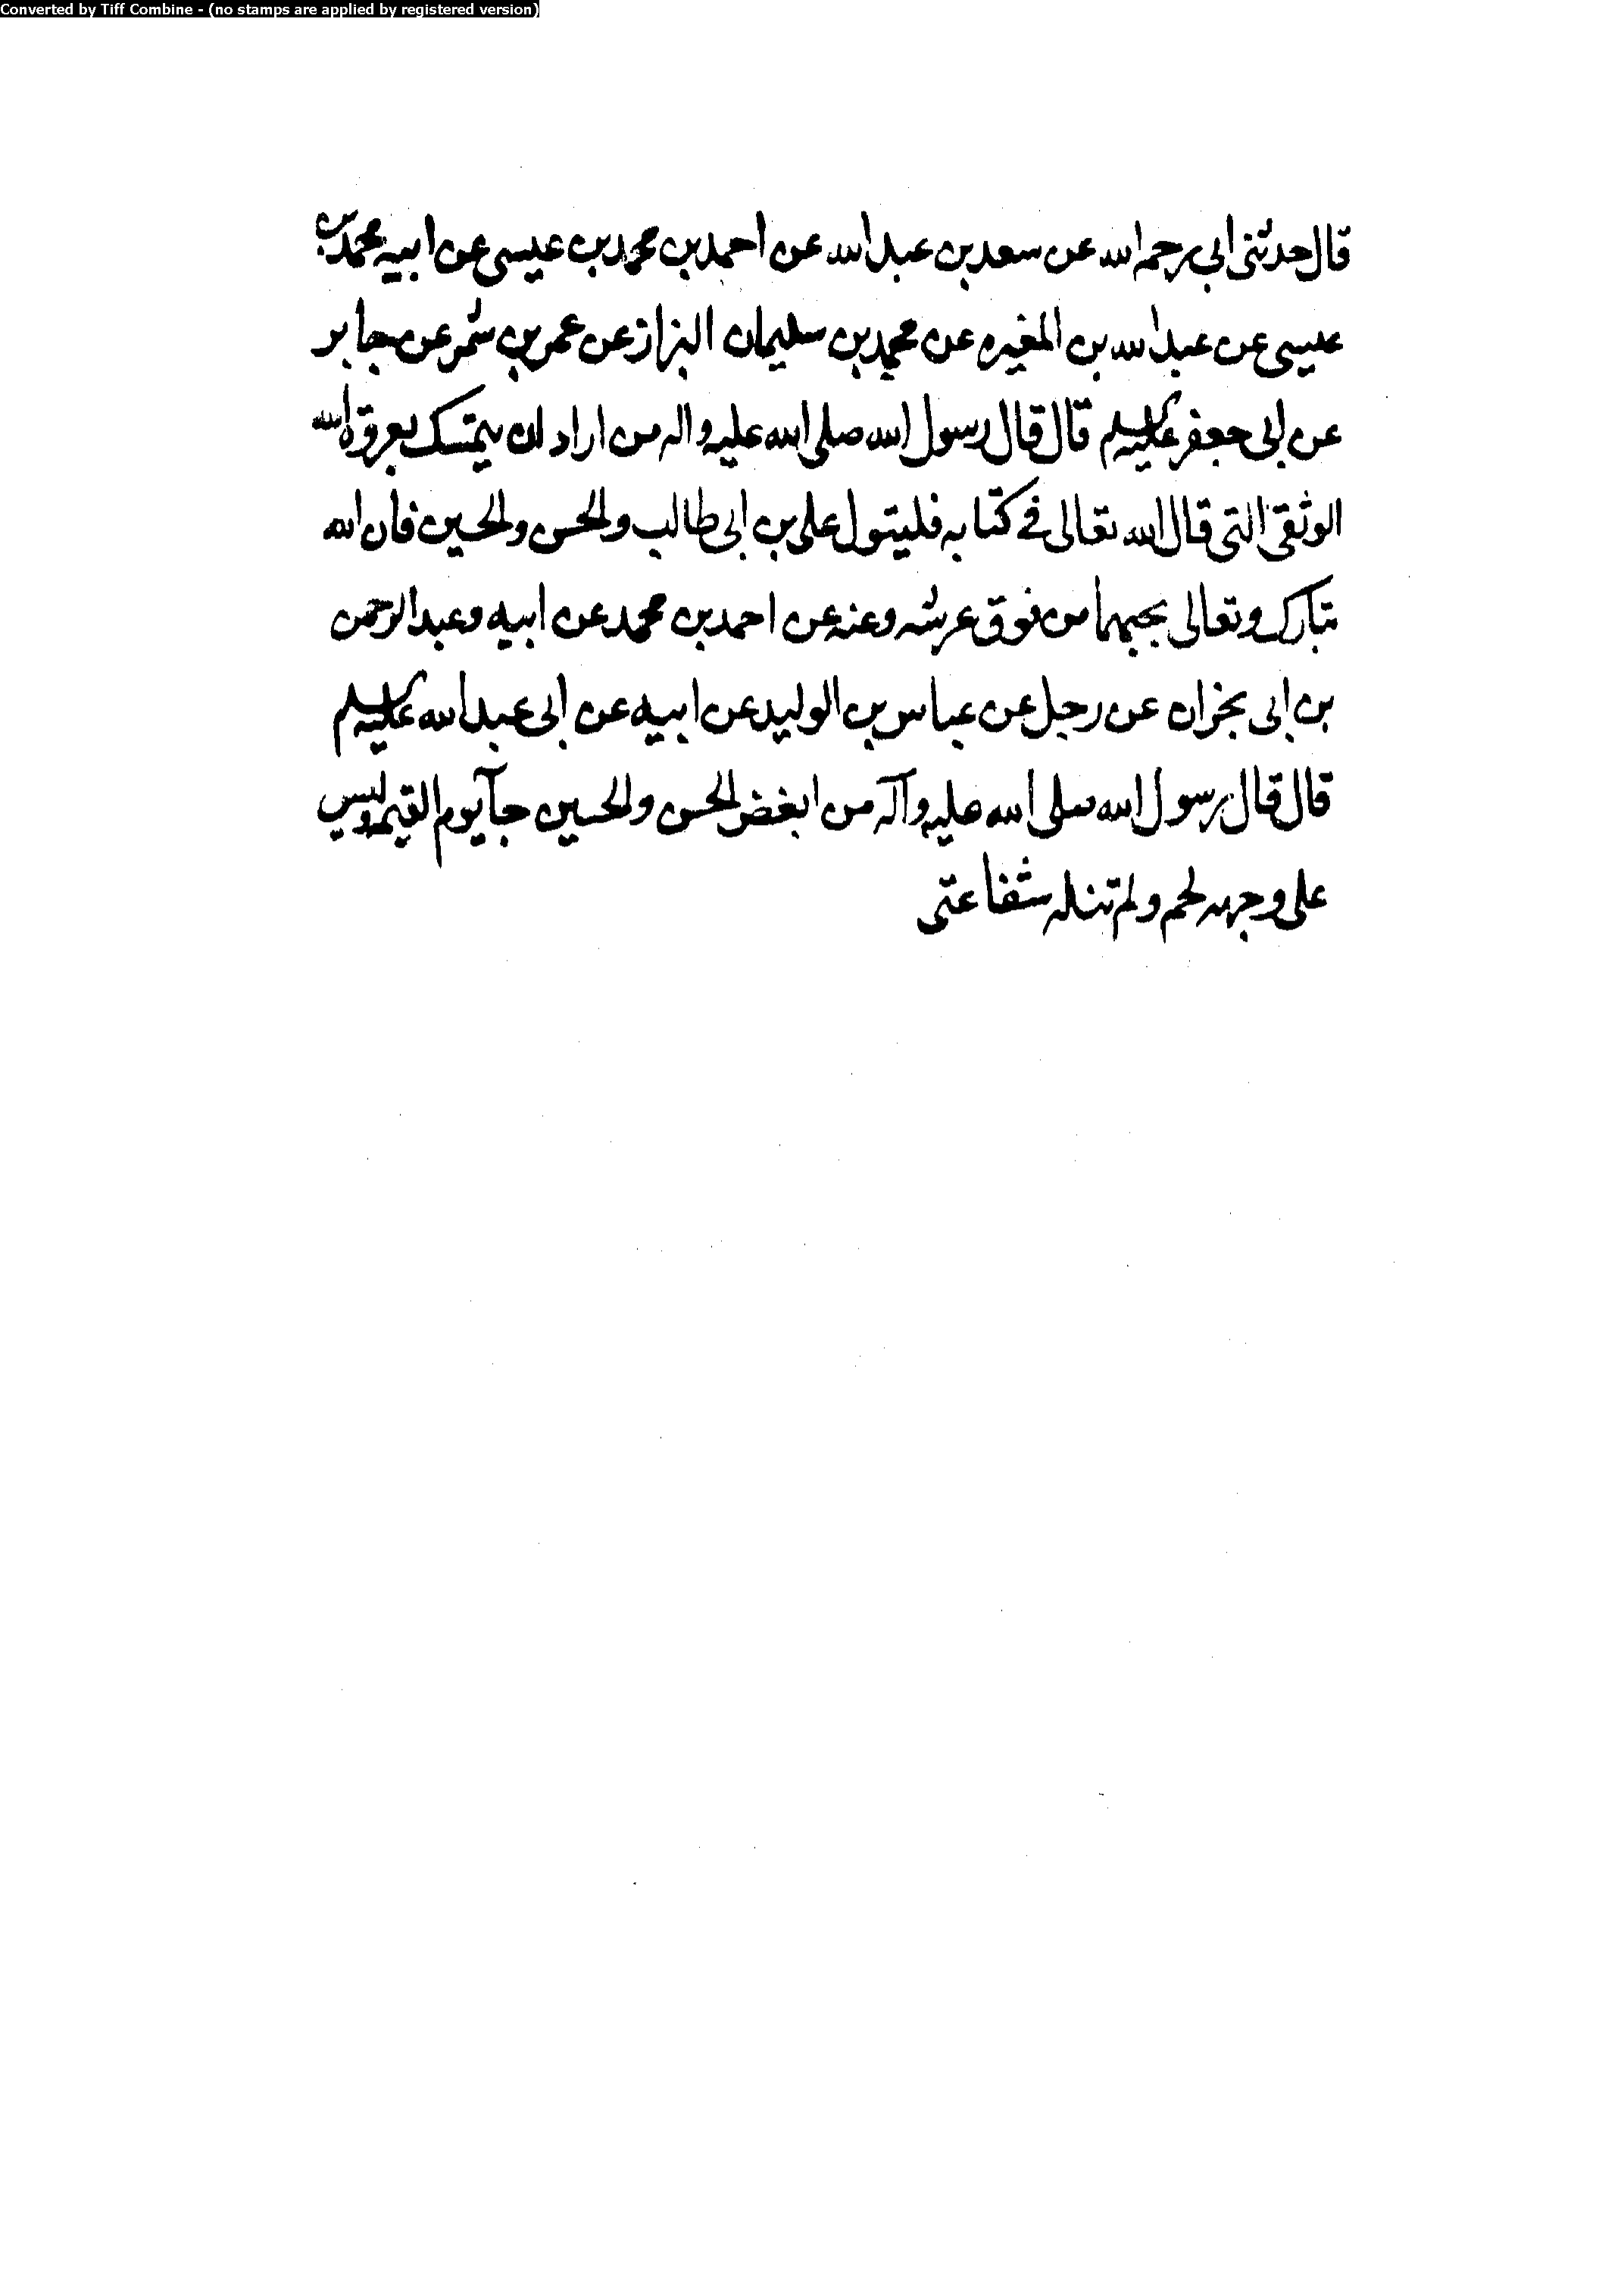 Converted by Tiff Combine - (no stamps are applied by registered version)
قال حدثنی ابی رحمه الله عن سعد بن عبد الله عن احمد بن محمد بن عیسی عن ابیه محمد بن
عیسی عن عبد الله بن المغیره عن محمد بن سلیمان البزاز عن عمرو بن شمر عن جابر
عن ابی جعفر علیه السلم قال قال رسول الله صلی الله علیه واله من اراد ان یتمسک بعروة الله
الوثقی التی قال الله تعالی فی کتابه فلیتول علی بن ابی طالب والحسن والحسین فان الله
تبارک وتعالی یحبهما من فوق عرشه وعنه عن احمد بن محمد عن ابیه وعبد الرحمن
بن ابی نجران عن رجل عن عباس بن الولید عن ابیه عن ابی عبد الله علیه السلم
قال قال رسول الله صلی الله علیه وآله من ابغض الحسن والحسین جآ یوم القیمه ولیس
علی وجهه لحم ولم تنله شفاعتی